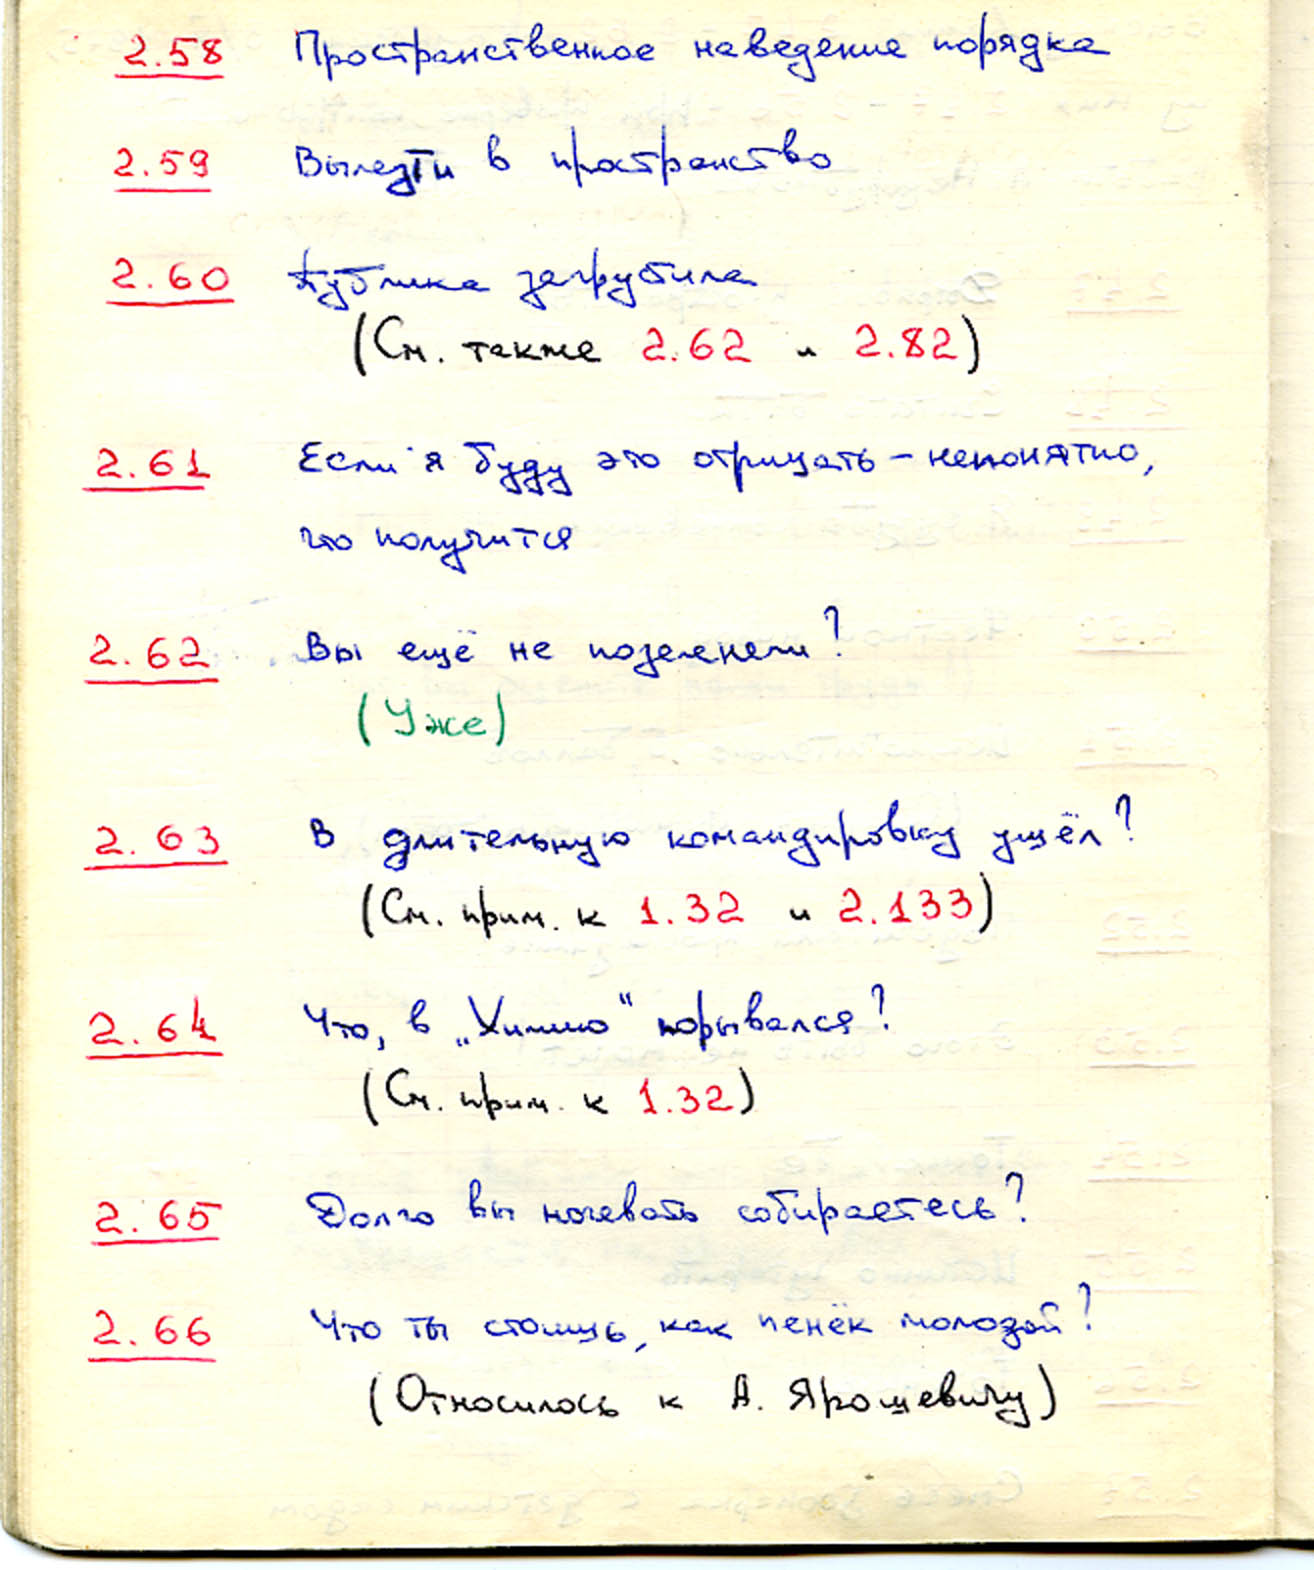 2.58 Пространственное наведение порядка
2.59 Вылезти в пространство
2.60 Публика загрубила
(См. также 2.62 и 2.82)
2.61 Если я буду это отрицать – непонятно,
что получится
2.62 Вы ещё не позеленели?
(Уже)
2.63 В длительную командировку ушёл?
(См. прим. к 1.32 и 2.133)
2.64 Что, в „Химию“ порывался?
(См. прим. к 1.32)
2.65 Долго вы ночевать собираетесь?
2.66 Что ты стоишь, как пенёк молодой?
(Относилось к А. Ярошевичу)